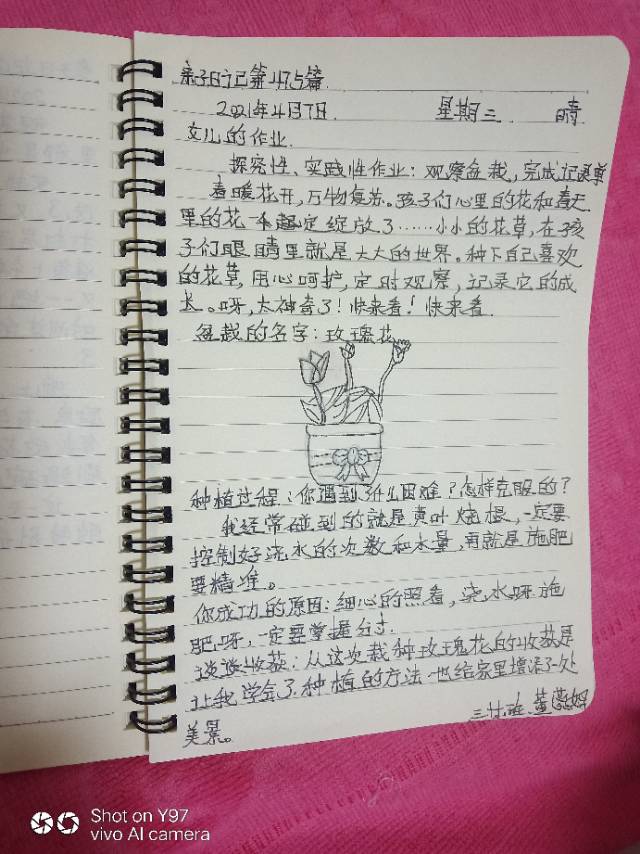 亲子日记第475篇
2021年4月7日 星期三 晴
女儿的作业
探究性、实践性作业：观察盆栽，完成记录单
春暖花开，万物复苏。孩子们心里的花和春天
里的花一起绽放了……小小的花草，在孩
子们眼睛里就是大大的世界。种下自己喜欢
的花草，用心呵护，定时观察，记录它的成
长。呀，太神奇了！快来看！快来看
盆栽的名字：玫瑰花
种植过程：你遇到什么困难？怎样克服的？
我经常碰到的就是黄叶烧根，一定要
控制好浇水的次数和水量，再就是施肥
要精准。
你成功的原因：细心的照看，浇水呀施
肥呀，一定要掌握分寸
谈谈收获：从这次栽种玫瑰花的收获是
让我学会了种植的方法也给家里增添了一处
美景。
班 董
Shot on Y97
vivo AI camera